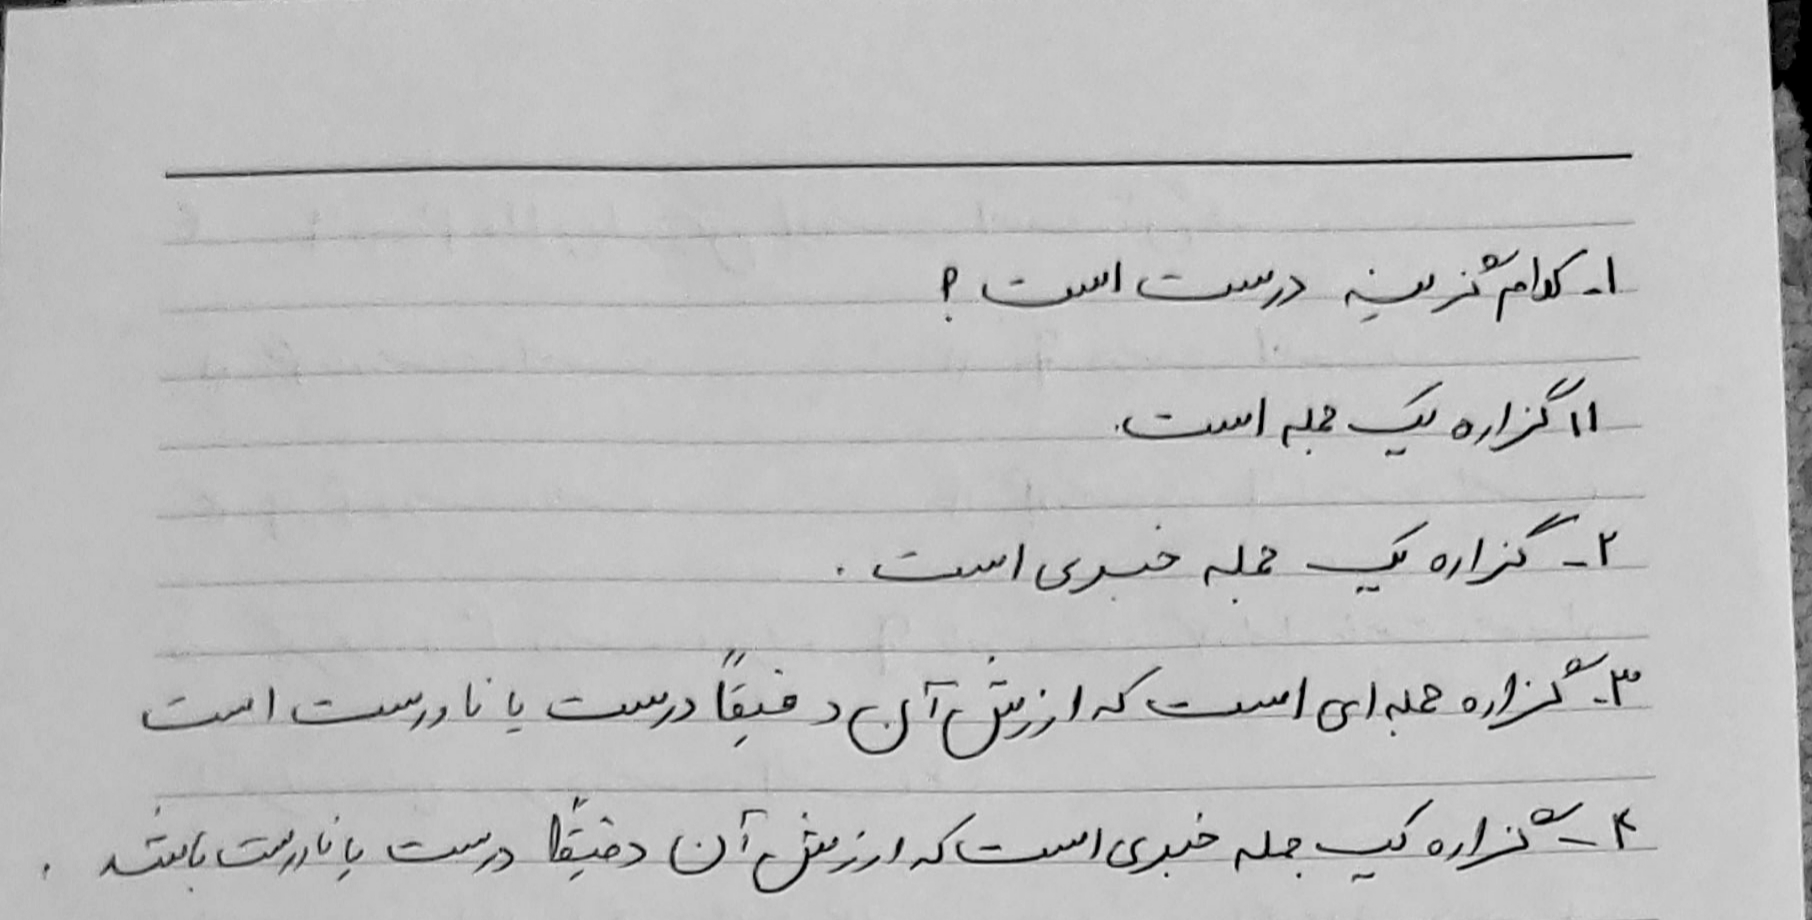 ۱- کدام گزینه درست است ؟
۱) گزاره یک جمله است.
۲- گزاره یک جمله خبری است .
۳- گزاره جمله ای است که ارزش آن دقیقاً درست یا نادرست است
۴- گزاره یک جمله خبری است که ارزش آن دقیقاً درست یا نادرست باشد .